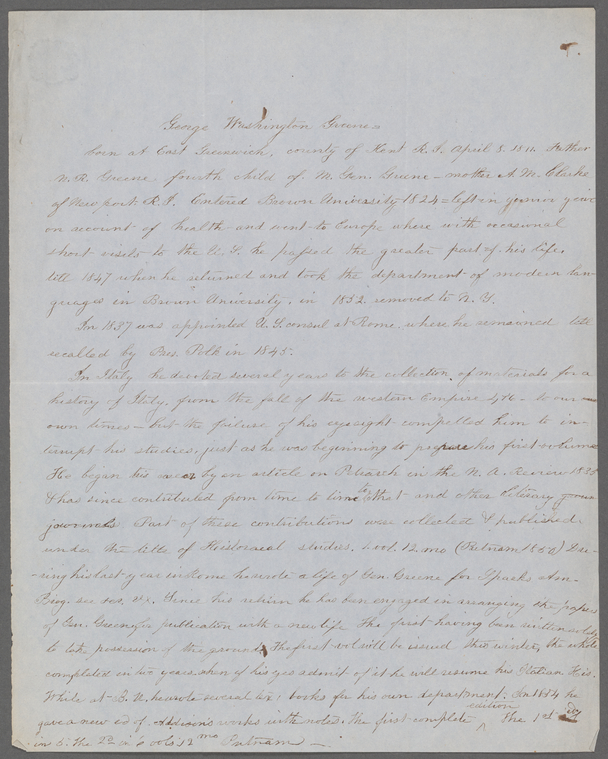 George Washington Greene
born at East Greenwich, county of Kent R.I. April 8. 1811. Father
N. R. Greene, fourth child of M. Gen. Greene – mother A. M. Clarke
of Newport R.I. Entered Brown University 1824 – left in junior year
on account of health and went to Europe where with occasional
short visits to the U.S. he passed the greater part of his life,
till 1847 when he returned and took the department of modern lan-
guages in Brown University. in 1852 removed to N. Y.
In 1837 was appointed U.S. consul at Rome. where he remained till
recalled by Pres. Polk in 1845.
In Italy he devoted several years to the collection of materials for a
history of Italy, from the fall of the western Empire 476 – to our
own times – but the failure of his eyesight compelled him to in-
terrupt his studies, just as he was beginning to prepare his first volume
He began his career by an article on Petrarch in the N. A. Review 1835
& has since contributed from time to time to that and other literary
journals. Part of these contributions were collected & published
under the title of Historical studies. 1 vol. 12.mo (Putnam 1850) Du-
ring his last year in Rome he wrote a life of Gen. Greene for Sparks Am.
Biog. Since his return he has been engaged in arranging the papers
of Gen. Greene for publication with a new life. The first having been written
to take possession of the ground. The first vol will be issued this winter, the whole
completed in two years when if his eyes admit of it he will resume his Italian His.
While at B. U. he wrote several books for his own department. In 1854 he
gave a new ed of Addison's works with notes. the first complete edition The 1st
in 5. the 2d in vols 12 mo Putnam –